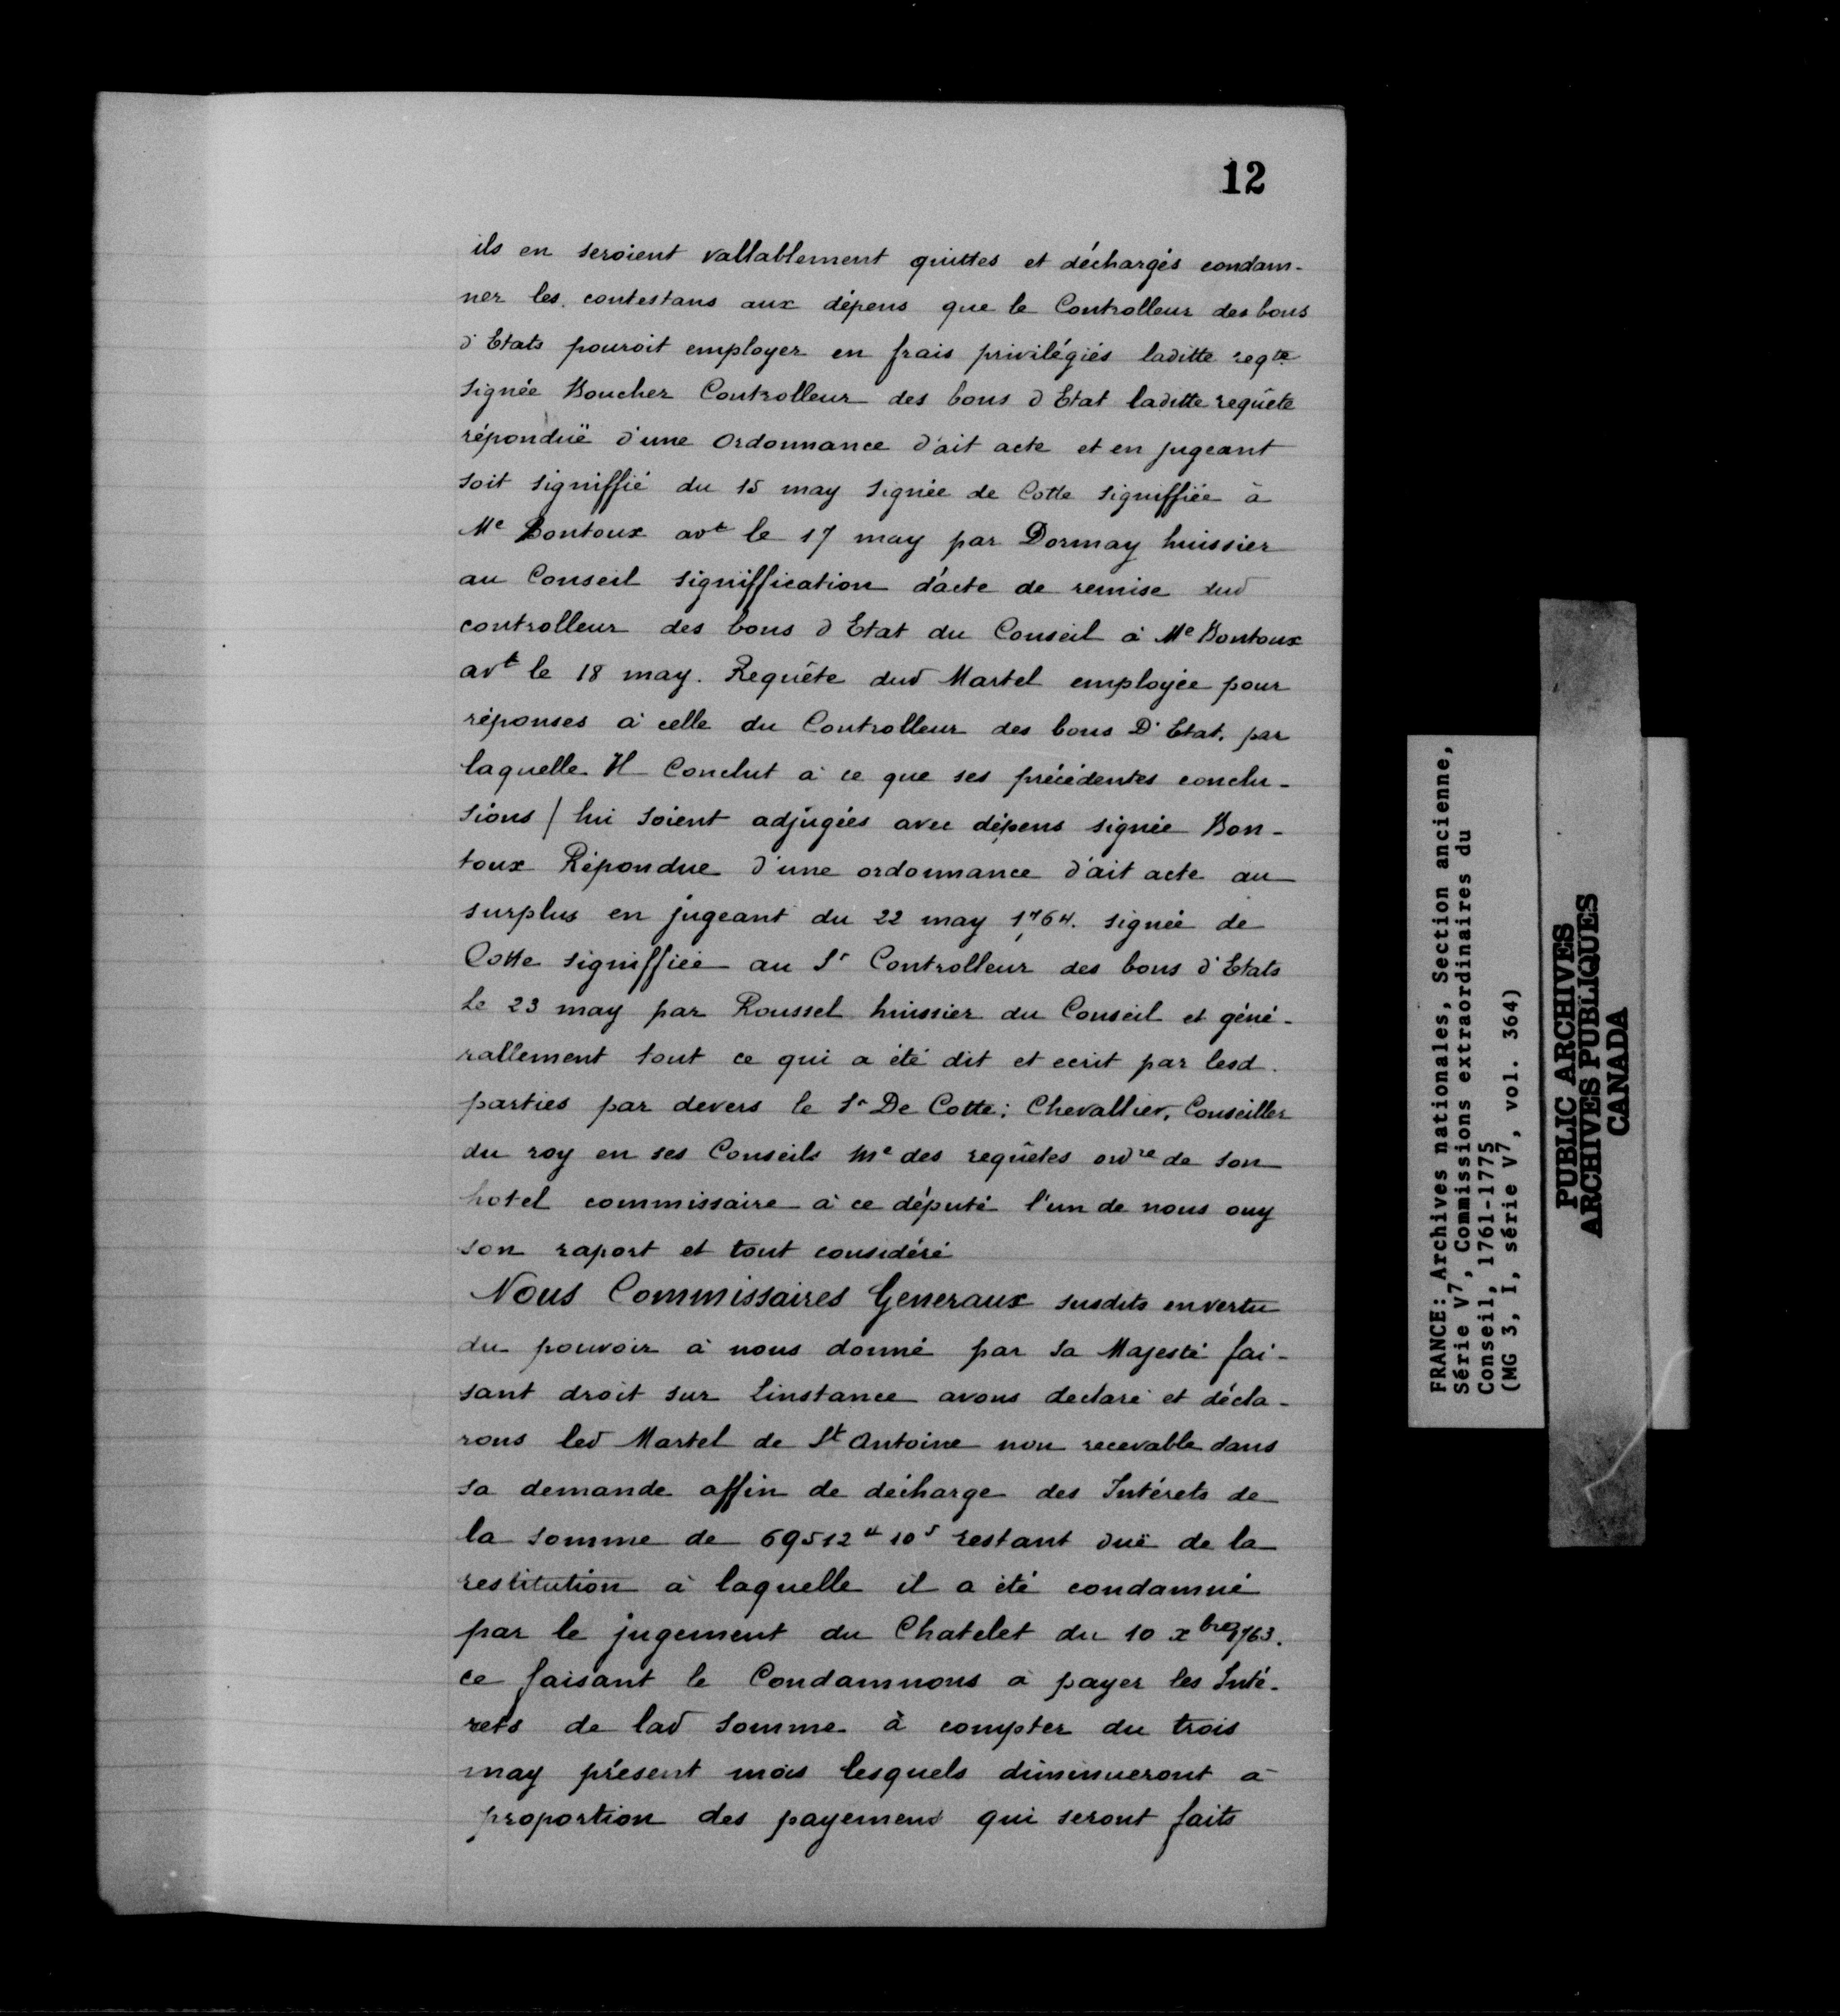 12
ils en seroient vallablement quittes et déchargés condam-
ner les contestans aux dépens que le Controlleur des bons
d'Etats pouroit employer en frais privilégiés laditte reqte
signée Boucher Controlleur des bons d'Etat laditte requête
réponduë d'une Ordonnance d'ait acte et en jugeant
soit signiffié du 15 may signée de Cotte signiffiée à
Me Bontoux avt le 17 may par Dormay huissier
au Conseil signiffication d'acte de remise dud
controlleur des bons d'Etat du Conseil à Me Bontoux
avt le 18 may. Requête dud Martel employée pour
réponses à celle du Controlleur des bons D'Etat, par
laquelle Il Conclut à ce que ses précédentes conclu-
sions / lui soient adjugées avec dépens signée Bon-
toux Répondue d'une ordonnance d'ait acte au
surplus en jugeant du 22 may 1764. signée de
Cotte signiffiée au Sr Controlleur des bons d'Etats
le 23 may par Roussel huissier du Conseil et géné-
rallement tout ce qui a été dit et ecrit par lesd.
parties par devers le Sr De Cotte; Chevallier, Conseiller
du roy en ses Conseils Me des requêtes ordre de son
hotel commissaire à ce député l'un de nous ouy
son raport et tout considéré
Nous Commissaires Generaux susdits en vertu
du pouvoir à nous donné par sa Majesté fai-
sant droit sur Linstance avons declaré et décla-
rons led Martel de St Antoine non recevable dans
sa demande affin de décharge des Intérets de
la somme de 69512# 10s restant duë de la
restitution à laquelle il a été condamné
par le jugement du Chatelet du 10 xbre 1763.
ce faisant le Condamnons à payer les Inté-
rets de lad somme à compter du trois
may présent mois lesquels diminueront à
proportion des payemens qui seront faits
FRANCE: Archives nationales, Section ancienne,
Série V7, Commissions extraordinaires du
Conseil, 1761-1775
(MG 3, I, série V7, vol. 364)
PUBLIC ARCHIVES
ARCHIVES PUBLIQUES
CANADA